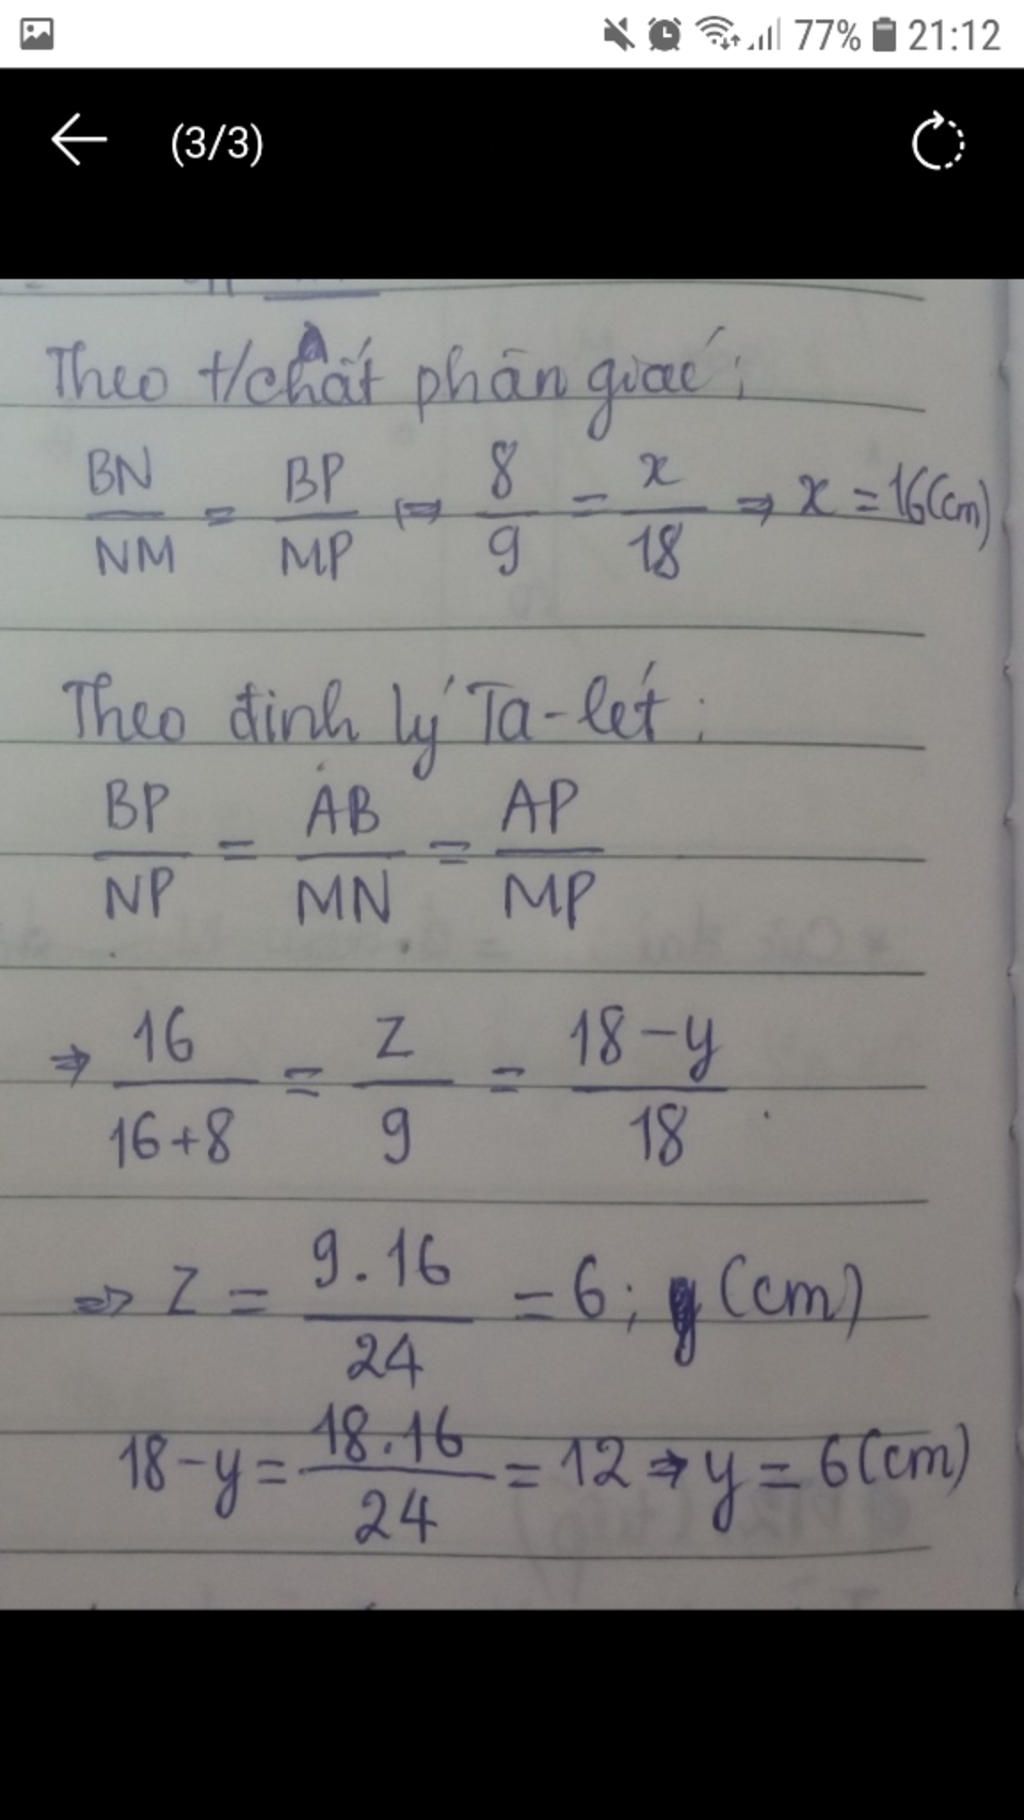 77% 21:12
(3/3)
Theo t/chất phân giác:
BN/NM = BP/MP ⇔ 8/9 = x/18 ⇒ x = 16(cm)
Theo định lý Ta-lét:
BP/NP = AB/MN = AP/MP
⇒ 16/16+8 = z/9 = 18-y/18
⇒ z = 9.16/24 = 6; (cm)
18-y = 18.16/24 = 12 ⇒ y = 6(cm)